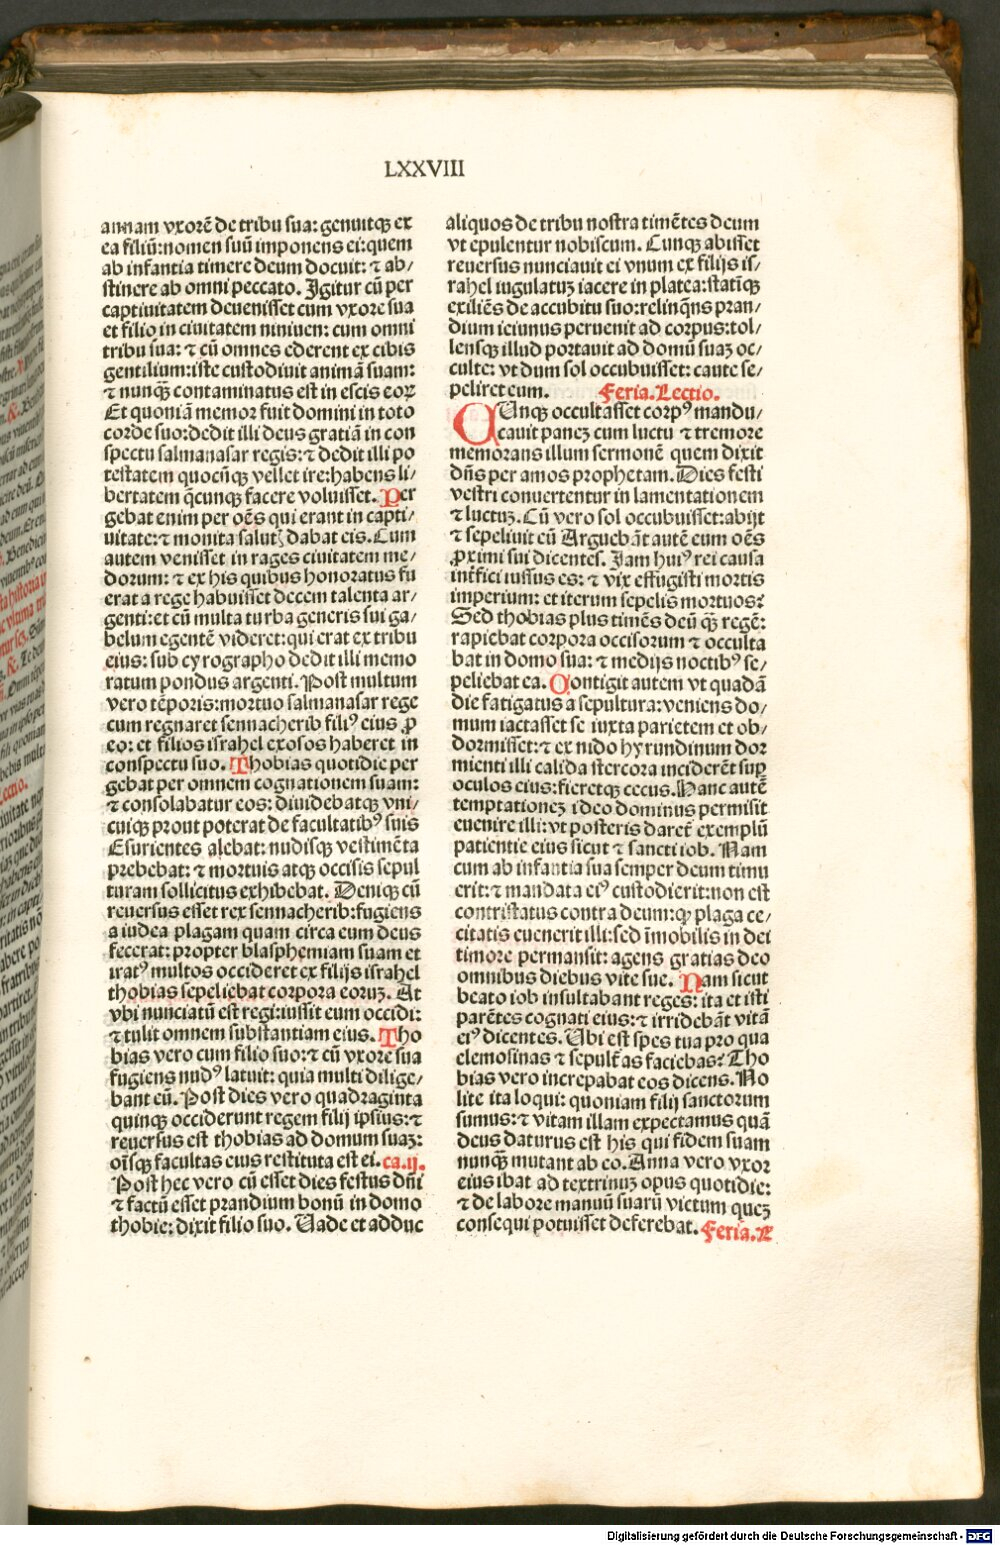 LXXVIII
annam vxorē de tribu sua: genuitqꝫ ex
ea filiū: nomen suū imponens ei: quem
ab infantia timere deum docuit: ⁊ ab/
stinere ab omni peccato. Igitur cū per
captiuitatem deuenisset cum vxore sua
et filio in ciuitatem niniuen: cum omni
tribu sua: ⁊ cū omnes ederent ex cibis
gentilium: iste custodiuit animā suam:
⁊ nunqꝫ contaminatus est in escis eoꝝ
Et quoniā memor fuit domini in toto
corde suo: dedit illi deus gratiā in con
spectu salmanasar regis: ⁊ dedit illi po
testatem quocūqꝫ vellet ire: habens li/
bertatem q̄cunqꝫ facere voluisset. Per
gebat enim per oēs qui erant in capti/
uitate: ⁊ monita salutꝭ dabat eis. Cum
autem venisset in rages ciuitatem me/
dorum: ⁊ ex his quibus honoratus fu
erat a rege habuisset decem talenta ar/
genti: et cū multa turba generis sui ga/
belum egentē videret: qui erat ex tribu
eius: sub cyrographo dedit illi memo
ratum pondus argenti. Post multum
vero tēporis: mortuo salmanasar rege
cum regnaret sennacherib filiꝰ eius ꝓ
eo: et filios israhel exosos haberet in
conspectu suo. Thobias quotidie per
gebat per omnem cognationem suam:
⁊ consolabatur eos: diuidebatqꝫ vni/
cuiqꝫ prout poterat de facultatibꝰ suis
Esurientes alebat: nudisqꝫ vestimēta
prebebat: ⁊ mortuis atqꝫ occisis sepul
turam sollicitus exhibebat. Deniqꝫ cū
reuersus esset rex sennacherib: fugiens
a iudea plagam quam circa eum deus
fecerat: propter blasphemiam suam et
iratꝰ multos occideret ex filijs israhel
thobias sepeliebat corpora eoruꝫ. At
vbi nunciatū est regi: iussit eum occidi:
⁊ tulit omnem substantiam eius. Tho
bias vero cum filio suo: ⁊ cū vxore sua
fugiens nudꝰ latuit: quia multi dilige/
bant eū. Post dies vero quadraginta
quinqꝫ occiderunt regem filij ipsius: ⁊
reuersus est thobias ad domum suaꝫ:
oīsqꝫ facultas eius restituta est ei. ca.ij.
Post hec vero cū esset dies festus dn̄i
⁊ factū esset prandium bonū in domo
thobie: dixit filio suo. Uade et adduc
aliquos de tribu nostra timētes deum
vt epulentur nobiscum. Cunqꝫ abisset
reuersus nunciauit ei vnum ex filijs is/
rahel iugulatuꝫ iacere in platea: statiqꝫ
exiliēs de accubitu suo: relinqn̄s pran/
dium ieiunus peruenit ad corpus: tol/
lensqꝫ illud portauit ad domū suaꝫ oc/
culte: vt dum sol occubuisset: caute se/
peliret eum. Feria. Lectio.
CUnqꝫ occultasset corpꝰ mandu/
cauit paneꝫ cum luctu ⁊ tremore
memorans illum sermonē quem dixit
dn̄s per amos prophetam. Dies festi
vestri conuertentur in lamentationem
⁊ luctuꝫ. Cū vero sol occubuisset: abijt
⁊ sepeliuit eū Arguebāt autē eum oēs
ꝓximi sui dicentes. Jam huiꝰ rei causa
int̄fici iussus es: ⁊ vix effugisti mortis
imperium: et iterum sepelis mortuos?
Sed thobias plus timēs deū qꝫ regē:
rapiebat corpora occisorum ⁊ occulta
bat in domo sua: ⁊ medijs noctibꝰ se/
peliebat ea. Contigit autem vt quadā
die fatigatus a sepultura: veniens do/
mum iactasset se iuxta parietem et ob/
dormisset: ⁊ ex nido hyrundinum dor
mienti illi calida stercora inciderēt suꝑ
oculos eius: fieretqꝫ cecus. Hanc autē
temptationeꝫ ideo dominus permisit
euenire illi: vt posteris daret̄ exemplū
patientie eius sicut ⁊ sancti iob. Nam
cum ab infantia sua semper deum timu
erit: ⁊ mandata eiꝰ custodierit: non est
contristatus contra deum: ꝙ plaga ce/
citatis euenerit illi: sed īmobilis in dei
timore permansit: agens gratias deo
omnibus diebus vite sue. Nam sicut
beato iob insultabant reges: ita et isti
parētes cognati eius: ⁊ irridebāt vitā
eiꝰ dicentes. Ubi est spes tua pro qua
elemosinas ⁊ sepult̄as faciebas? Tho
bias vero increpabat eos dicens. No
lite ita loqui: quoniam filij sanctorum
sumus: ⁊ vitam illam expectamus quā
deus daturus est his qui fidem suam
nunqꝫ mutant ab eo. Anna vero vxor
eius ibat ad textrinuꝫ opus quotidie:
⁊ de labore manuū suarū victum queꝫ
consequi potuisset deferebat. Feria. L
Digitalisierung gefördert durch die Deutsche Forschungsgemeinschaft - DFG